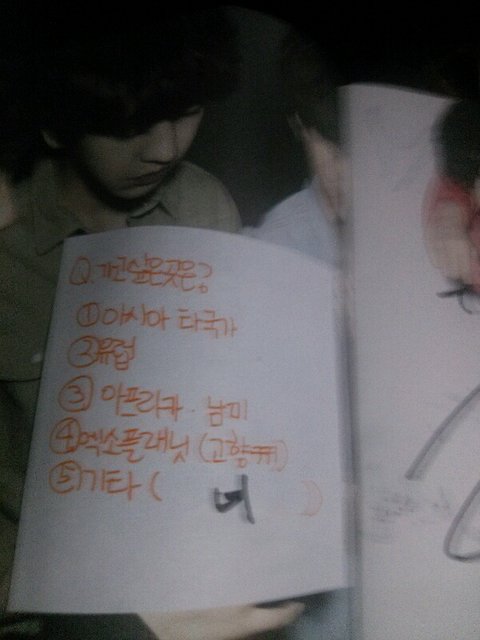 Q. 가고싶은곳은?
① 아시아 타국가
② 유럽
③ 아프리카 · 남미
④ 엑소플래닛 (고향ㅠㅠ)
⑤ 기타 ( 네 )